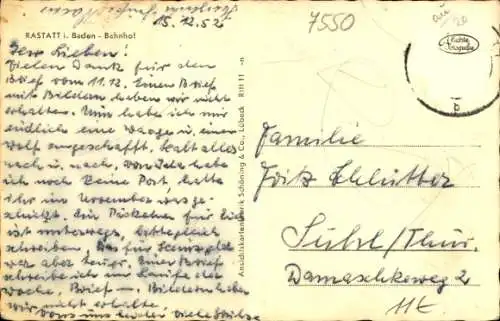 15.12.52
7550
RASTATT i. Baden - Bahnhof
Ihr Lieben!
Vielen Dank für den
Brief vom 11.12. Einen Brief
mit Bildern haben wir nicht
erhalten. Nun habe ich mir
endlich eine Waage u. einen
Wolf angeschafft. halt alles
nach u. nach. von Ida habe
ich noch keine Post, hatte
ihr im November was ge-
schickt. Ein Päckchen für Euch
ist unterwegs, bitte gleich
schreiben.
war aber teuer. Einen Brief
schreibe ich im Laufe der
Woche, Brief - Bildern haben
wir nicht erhalten.
von uns viele Grüße
Ansichtskartenfabrik Schöning & Co., Lübeck Rtt 11 -n
Echte
Fotografie
b
Familie
Fritz Schlütter
Suhl/Thür.
Damaschkeweg 2